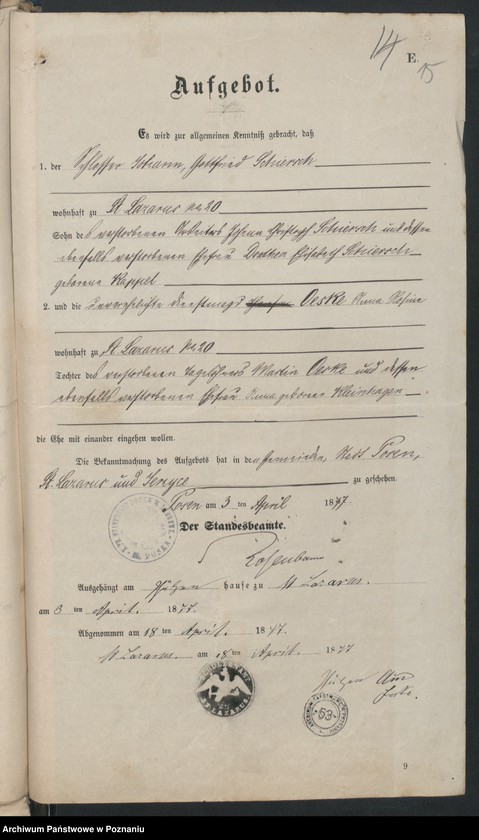 14
E.
15
Aufgebot.
Es wird zur allgemeinen Kenntniß gebracht, daß
1. der Schlosser Johann Gottfried Schiersch
wohnhaft zu St Lazarus No 20
Sohn des verstorbenen Arbeiters Johann Christoph Schiersch und dessen
ebenfalls verstorbenen Ehefrau Dorothea Elisabeth Schiersch
geborene Kappel
2. und die unverehelichte Dienstmagd Oeske Anna Rosine
wohnhaft zu St Lazarus No 20
Tochter des verstorbenen Martin Oeske und dessen
ebenfalls verstorbenen Ehefrau Anna geborene Kleinhagen
die Ehe mit einander eingehen wollen.
Die Bekanntmachung des Aufgebots hat in den Gemeinden Posen,
St. Lazarus und Jerzyce zu geschehen.
Posen am 3 ten April 1877
Der Standesbeamte.
Ausgehängt am hause zu St Lazarus.
am 3 ten April. 1877.
Abgenommen am 18 ten April. 1877.
St Lazarus. am 18 ten April. 1877
53
9
Archiwum Państwowe w Poznaniu